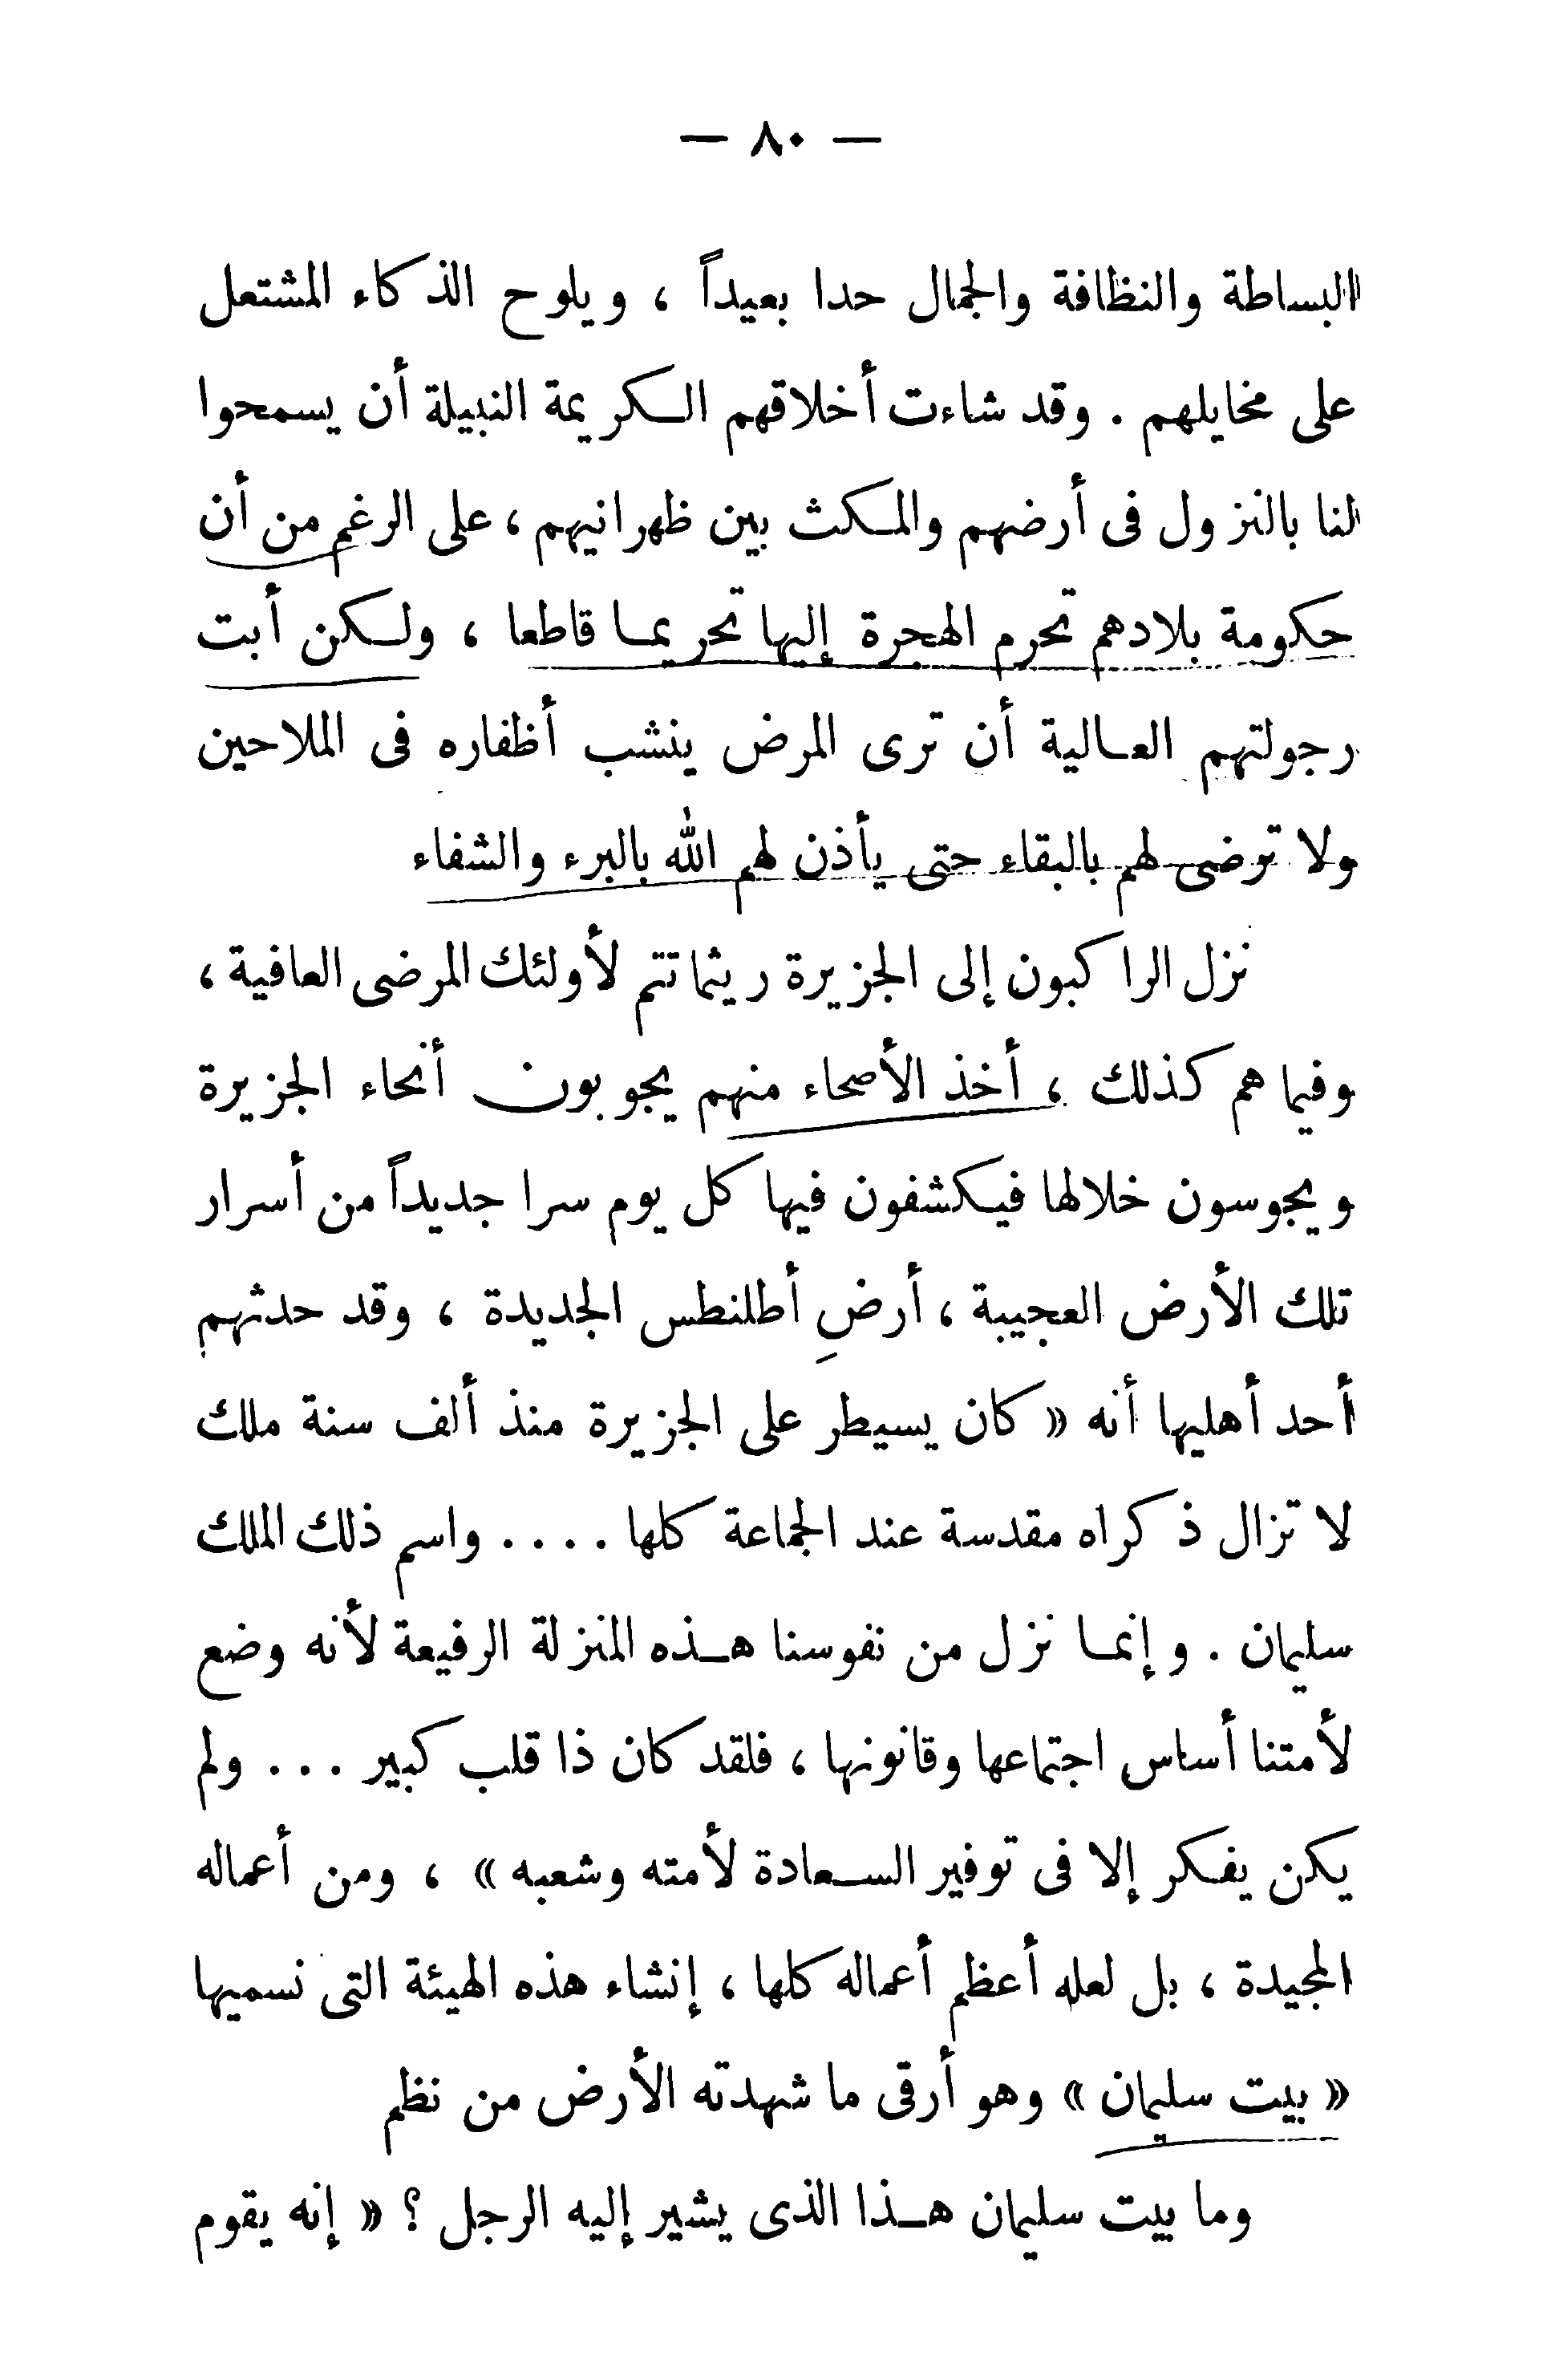 — ٨٠ —
البساطة والنظافة والجمال حدا بعيداً ، ويلوح الذكاء المشتعل
على مخايلهم . وقد شاءت أخلاقهم الكريمة النبيلة أن يسمحوا
لنا بالنزول فى أرضهم والمكث بين ظهرانيهم ، على الرغم من أن
حكومة بلادهم تحرم الهجرة إليها تحريما قاطعا ، ولكن أبت
رجولتهم العالية أن ترى المرض ينشب أظفاره فى الملاحين
ولا ترضى لهم بالبقاء حتى يأذن لهم الله بالبرء والشفاء
نزل الراكبون إلى الجزيرة ريثما تتم لأولئك المرضى العافية ،
وفيما هم كذلك ، أخذ الأصحاء منهم يجوبون أنحاء الجزيرة
ويجوسون خلالها فيكشفون فيها كل يوم سرا جديداً من أسرار
تلك الأرض العجيبة ، أرضِ أطلنطس الجديدة ، وقد حدثهم
أحد أهليها أنه « كان يسيطر على الجزيرة منذ ألف سنة ملك
لا تزال ذكراه مقدسة عند الجماعة كلها .... واسم ذلك الملك
سليمان . وإنما نزل من نفوسنا هذه المنزلة الرفيعة لأنه وضع
لأمتنا أساس اجتماعها وقانونها ، فلقد كان ذا قلب كبير ... ولم
يكن يفكر إلا فى توفير السعادة لأمته وشعبه » ، ومن أعماله
المجيدة ، بل لعله أعظم أعماله كلها ، إنشاء هذه الهيئة التى نسميها
« بيت سليمان » وهو أرقى ما شهدته الأرض من نظم
وما بيت سليمان هذا الذى يشير إليه الرجل ؟ « إنه يقوم